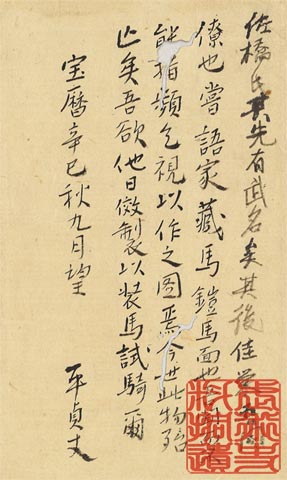 佐橋氏其先有武名矣其後佳
僚也嘗語家藏馬鎧馬面也
頻乞視以作之圖焉今世此物殆
亡矣吾欲他日倣製以装馬試騎爾
宝暦辛巳秋九月望
平貞丈